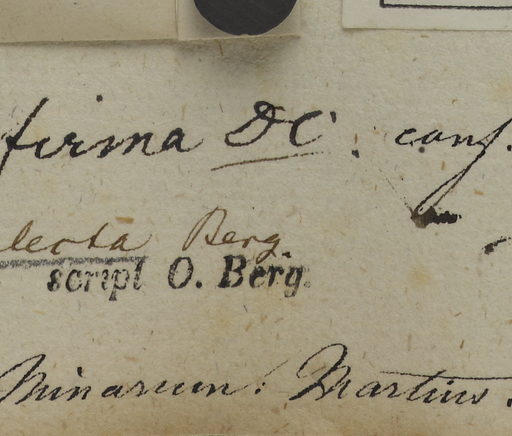 firma DC. conf.
lecta Berg.
scripſ O. Berg.
Minarum: Martius.